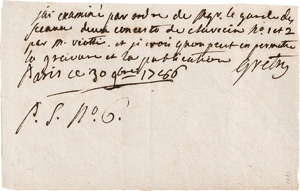 j'ai examiné par ordre de Mgr. le garde des
sceaux deux concerto de clavecin No. 1 et 2
par M. viotti. et je crois qu'on peut en permettre
la gravure et la publication
Paris ce 30 9bre 1786 Gretry
P. S. No 6.